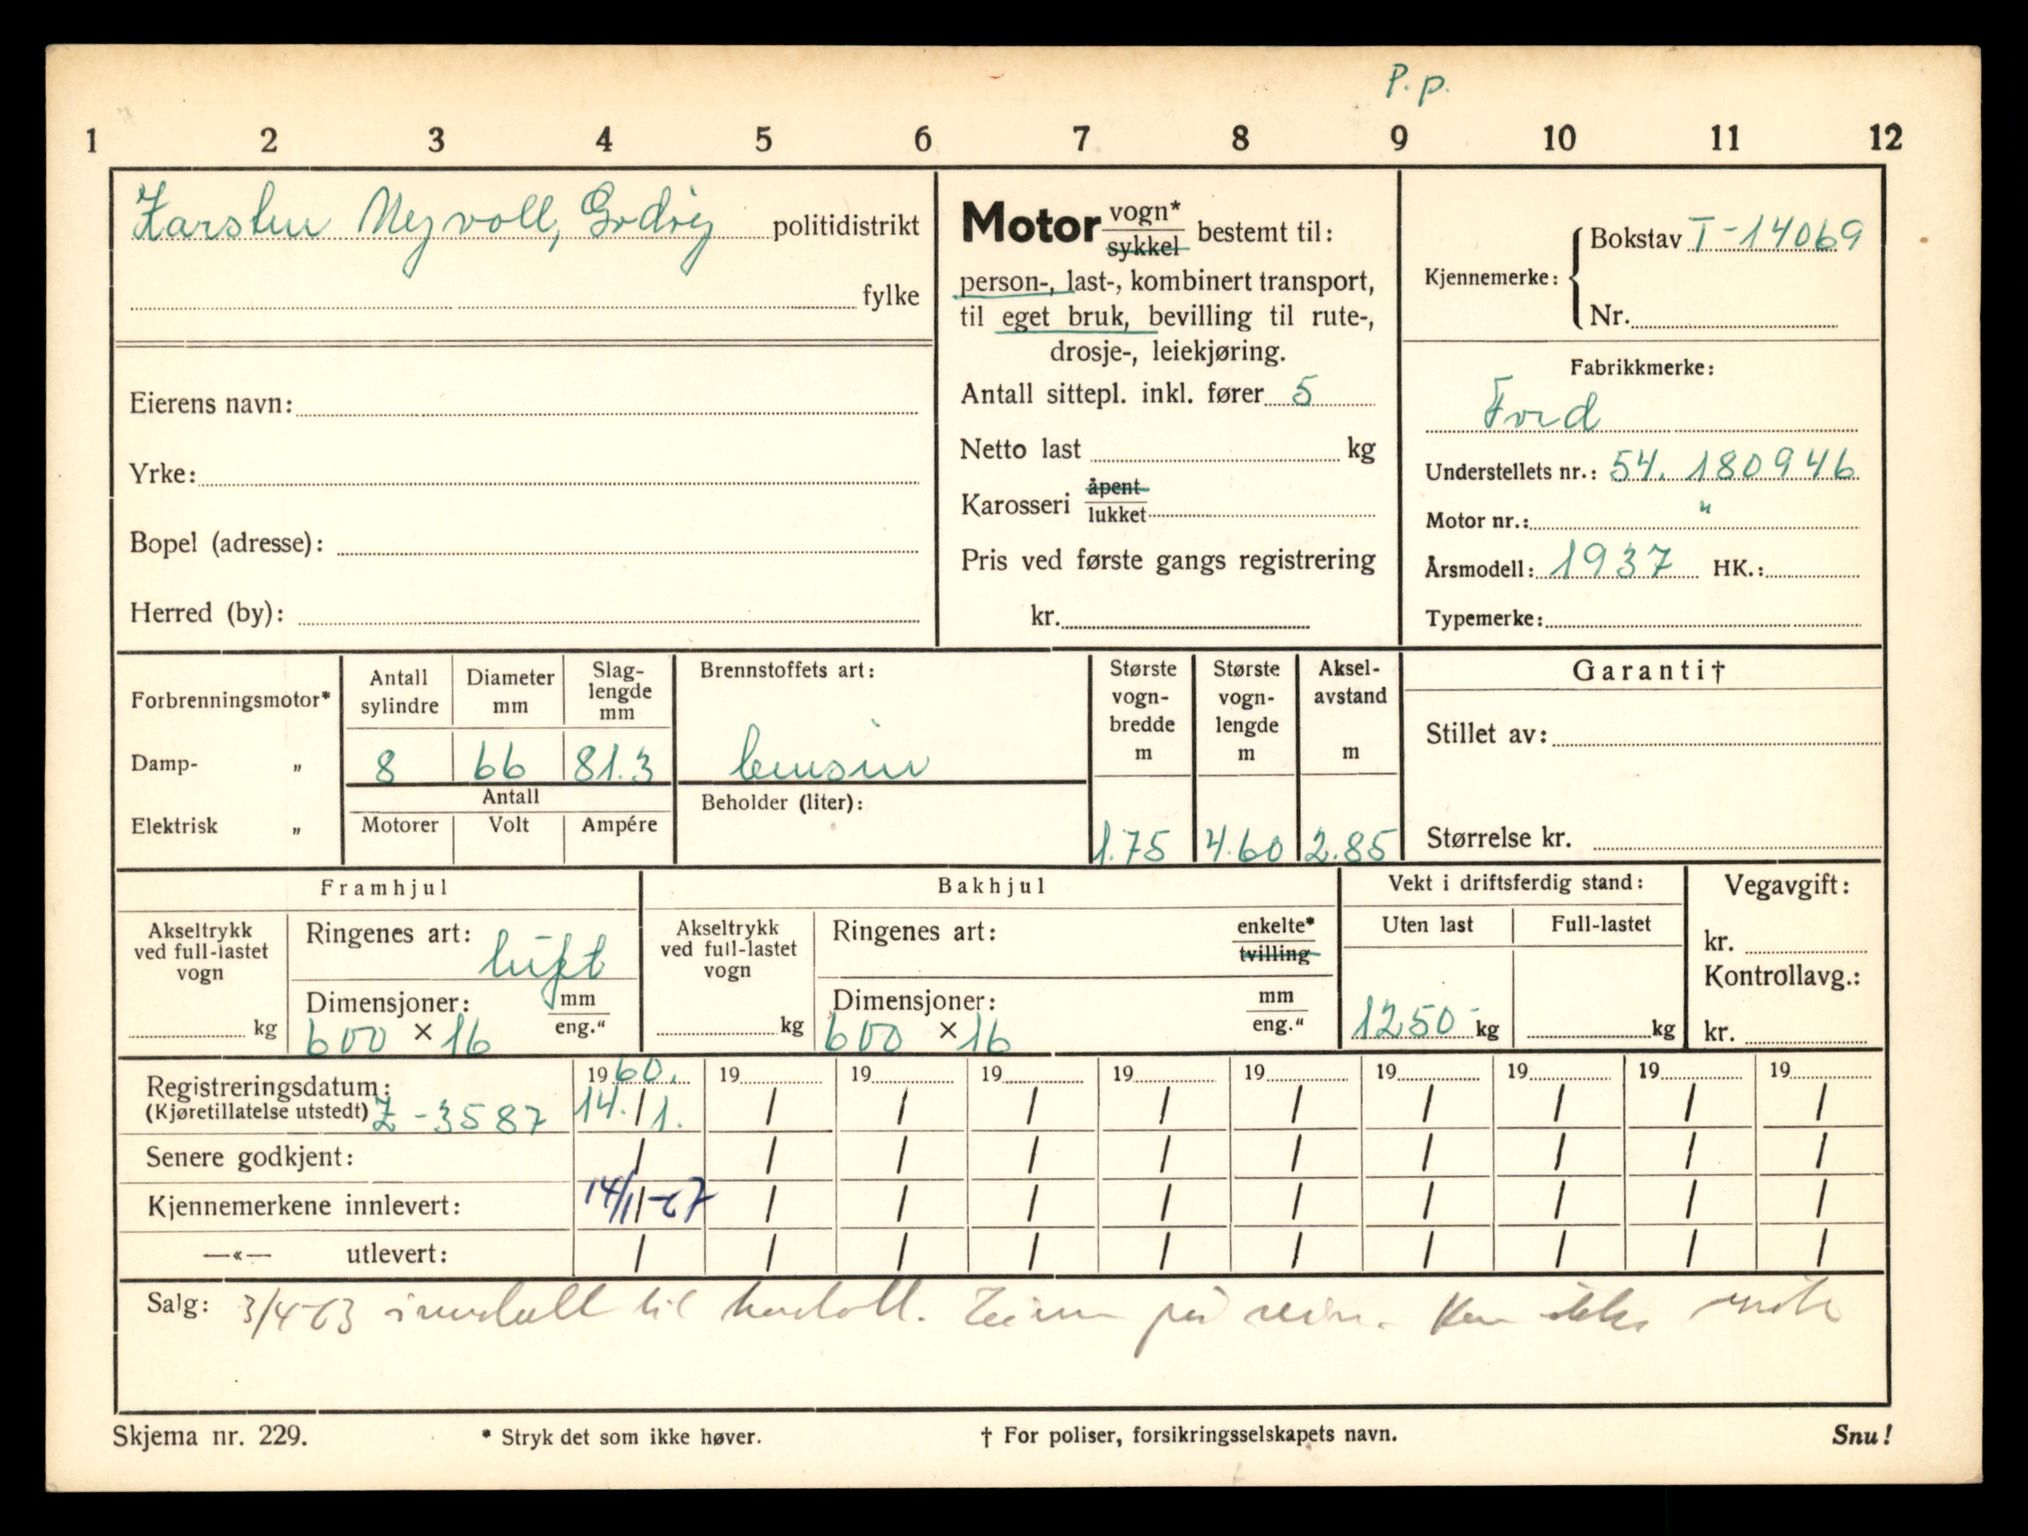 P.p.
1 2 3 4 5 6 7 8 9 10 11 12
Karsten Nyvoll, politidistrikt
fylke
Eierens navn:
Yrke:
Bopel (adresse):
Herred (by):
Motor vogn* sykkel bestemt til:
person-, last-, kombinert transport,
til eget bruk, bevilling til rute-,
drosje-, leiekjøring.
Antall sittepl. inkl. fører 5
Netto last kg
Karosseri åpent lukket
Pris ved første gangs registrering
kr.
Kjennemerke: Bokstav T-14069
Nr.
Fabrikkmerke:
Ford
Understellets nr.: 54. 180946
Motor nr.: "
Årsmodell: 1937 HK.:
Typemerke:
Forbrenningsmotor*
Damp- „
Elektrisk „
Antall sylindre 8
Diameter mm 66
Slaglengde mm 81.3
Antall
Motorer Volt Ampére
Brennstoffets art:
bensin
Beholder (liter):
Største vognbredde m 1.75
Største vognlengde m 4.60
Akselavstand m 2.85
Garanti†
Stillet av:
Størrelse kr.
Framhjul
Akseltrykk ved full-lastet vogn kg
Ringenes art: luft
Dimensjoner: mm eng."
600 × 16
Bakhjul
Akseltrykk ved full-lastet vogn kg
Ringenes art: enkelte* tvilling
Dimensjoner: mm eng."
600 × 16
Vekt i driftsferdig stand:
Uten last Full-lastet
1250 kg kg
Vegavgift:
kr.
Kontrollavg.:
kr.
Registreringsdatum: 1960. 19 19 19 19 19 19 19 19 19
(Kjøretillatelse utstedt) Z-3587 14./1. / / / / / / / / /
Senere godkjent: / / / / / / / / / /
Kjennemerkene innlevert: 14/11-67 / / / / / / / / /
—«— utlevert: / / / / / / / / / /
Salg: 3/4-63 til på ikke
Skjema nr. 229. * Stryk det som ikke høver. † For poliser, forsikringsselskapets navn. Snu!